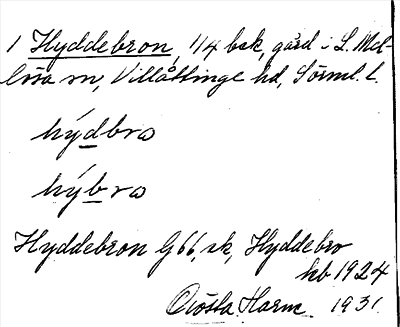 1 Hyddebron, 1/4 bsk, gård i L. Mel-
lösa sn, Villåttinge hd, Sörml. l.
hýdbrɷ
hýbrɷ
Hyddebron G66, sk, Hyddebro
kb 1924
Gösta Harm 1931.